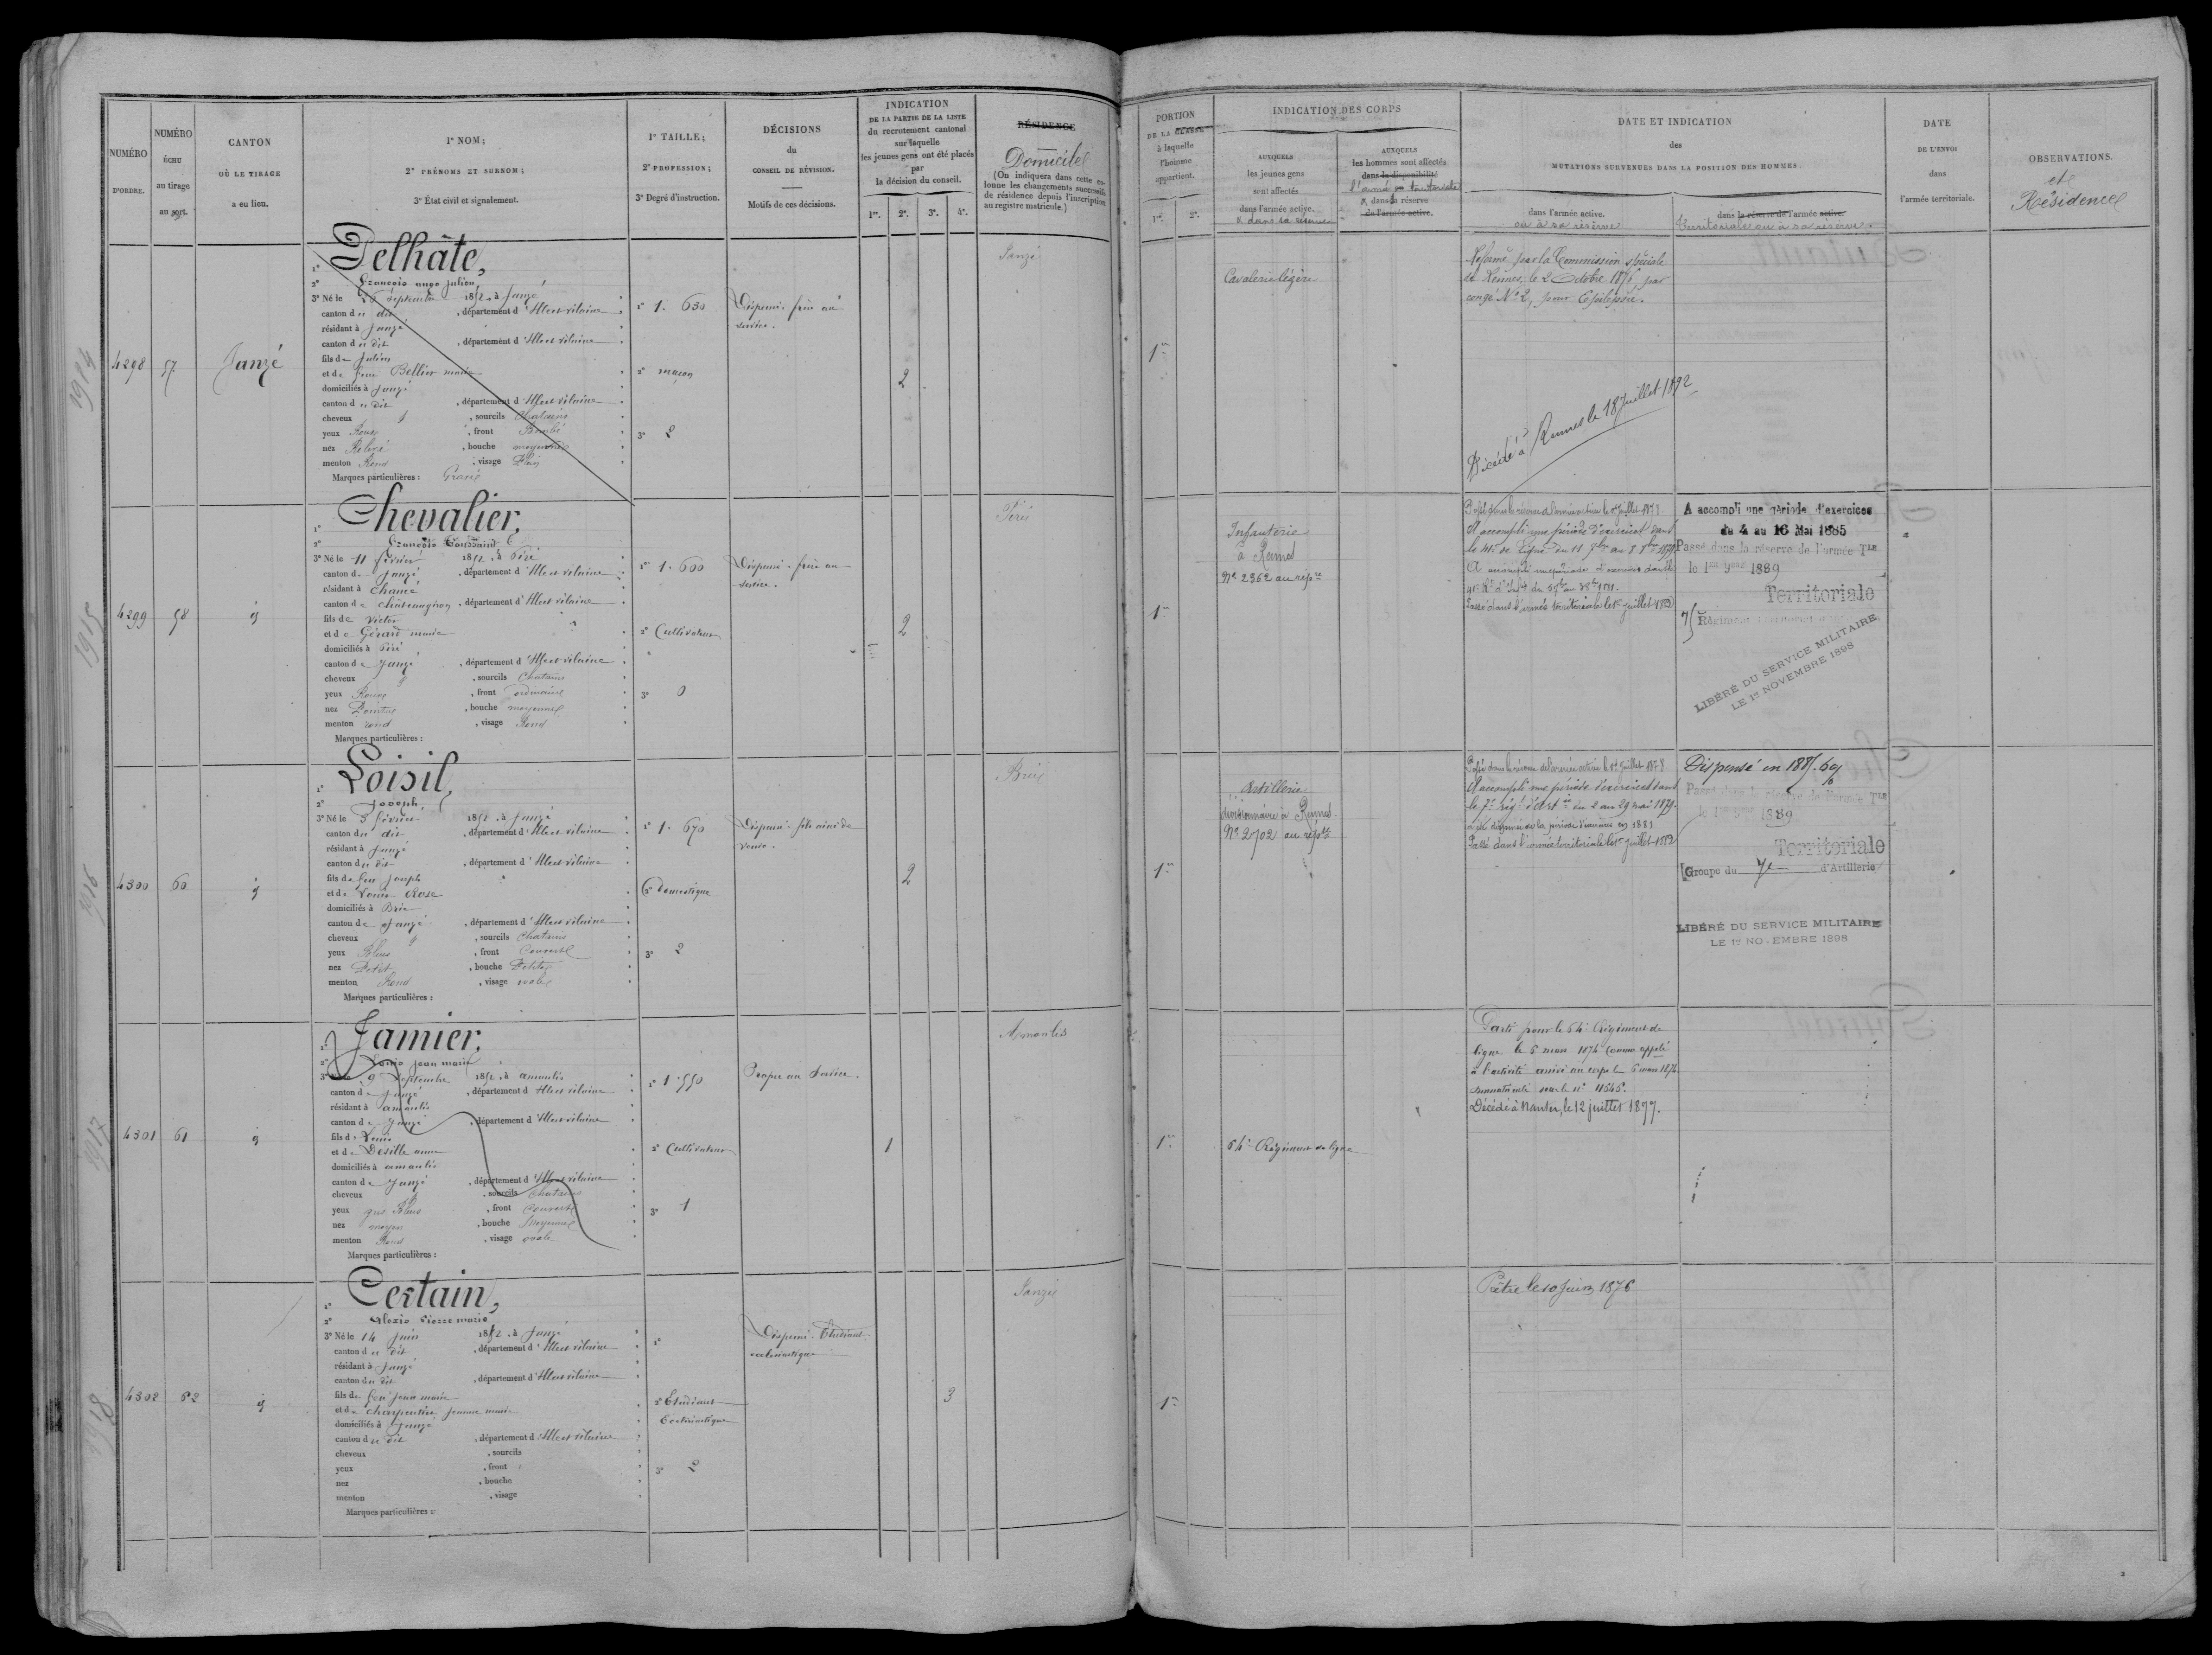 NUMÉRO
D'ORDRE.
NUMÉRO
ÉCHU
au tirage
au sort.
CANTON
OÙ LE TIRAGE
a eu lieu.
1° NOM;
2° PRÉNOMS ET SURNOM;
3° État civil et signalement.
1° TAILLE;
2° PROFESSION;
3° Degré d'instruction.
DÉCISIONS
du
CONSEIL DE RÉVISION.
Motifs de ces décisions.
INDICATION
DE LA PARTIE DE LA LISTE
du recrutement cantonal
sur laquelle
les jeunes gens ont été placés
par
la décision du conseil.
1re. 2e. 3e. 4e.
RÉSIDENCE
Domicile
(On indiquera dans cette co-
lonne les changements successifs
de résidence depuis l'inscription
au registre matricule.)
PORTION
DE LA CLASSE
à laquelle
l'homme
appartient.
1re. 2e.
INDICATION DES CORPS
AUXQUELS
les jeunes gens
sont affectés
dans l'armée active.
& dans sa réserve
AUXQUELS
les hommes sont affectés
dans la disponibilité
l'armée territoriale
& dans la réserve
de l'armée active.
DATE ET INDICATION
des
MUTATIONS SURVENUES DANS LA POSITION DES HOMMES.
dans l'armée active.
ou à sa réserve
dans la réserve de l'armée active.
Territoriale ou à sa réserve.
DATE
DE L'ENVOI
dans
l'armée territoriale.
OBSERVATIONS.
et
Résidence
1914
4298 57 Janzé
1° Delhâte,
2° François ange Julien
3° Né le septembre 1852, à Janzé
canton du dit, département d'Ille et vilaine
résidant à Janzé
canton du dit, département d'Ille et vilaine
fils de Julien
et de Bellier marie
domiciliés à Janzé
canton du dit, département d'Ille et vilaine
cheveux & , sourcils Chatains
yeux Roux , front Bombé
nez Relevé , bouche moyenne
menton Rond , visage Plein
Marques particulières : Gravé
1° 1. 630
2° maçon
3° 2
Dispensé. frère au
service.
2
Janzé
1re
Cavalerie légère
Réformé par la Commission spéciale
de Rennes, le 2 Octobre 1876, par
congé N° 2, pour Epilepsie.
Décédé à Rennes le 18 Juillet 1892
1915
4299 58 id
1° Chevalier,
2° François Toussaint
3° Né le 11 février 1852, à Piré
canton de Janzé, département d'Ille et vilaine
résidant à Chancé
canton de Châteaugiron, département d'Ille et vilaine
fils de Victor
et de Gérard marie
domiciliés à Piré
canton de Janzé, département d'Ille et vilaine
cheveux & , sourcils Chatains
yeux Roux , front ordinaire
nez Pointu , bouche moyenne
menton rond , visage Rond
Marques particulières :
1° 1. 600
2° Cultivateur
3° 0
Dispensé. frère au
service.
2
Piré
1re
Infanterie
à Rennes
N° 2362 au rép re
Passé dans la réserve de l'armée active le 1er Juillet 1878
A accompli une période d'exercices dans
le 41e de Ligne du 11 7bre au 8 8bre 1879
A accompli une période d'exercices dans le
Passé dans l'armée territoriale le 1er juillet 1882
A accompli une période d'exercices
du 4 au 16 Mai 1885
Passé dans la réserve de l'armée Tle
le 1er 1889
Territoriale
75 Régiment territorial
LIBÉRÉ DU SERVICE MILITAIRE
LE 1er NOVEMBRE 1898
1916
4300 60 id
1° Loisil,
2° Joseph,
3° Né le 3 février 1852, à Janzé
canton du dit, département d'Ille et vilaine
résidant à Janzé
canton du dit, département d'Ille et vilaine
fils de feu Joseph
et de Rose
domiciliés à Brie
canton de Janzé, département d'Ille et vilaine
cheveux & , sourcils Chatains
yeux Bleus , front Couvert
nez Petit , bouche Petite
menton Rond , visage ovale
Marques particulières :
1° 1. 670
2° Domestique
3° 2
Dispensé. fils aîné de
veuve.
2
Brie
1re
Artillerie
divisionnaire à Rennes
N° 2702 au rép re
Passé dans la réserve de l'armée active le 1er Juillet 1878
A accompli une période d'exercices dans
le 7e Régt d'Art ie du 2 au 29 mai 1879.
a été dispensé de la période d'exercices en 1881
Passé dans l'armée territoriale le 1er juillet 1882
Dispensé en 1885.
Passé dans la réserve de l'armée Tle
le 1er 1889
Territoriale
Groupe du 7e d'Artillerie
LIBÉRÉ DU SERVICE MILITAIRE
LE 1er NOVEMBRE 1898
1917
4301 61 id
1° Jamier,
2° Louis Jean marie
3° Né le 9 Septembre 1852, à amanlis
canton de Janzé, département d'Ille et vilaine
résidant à amanlis
canton de Janzé, département d'Ille et vilaine
fils de Louis
et de Désille anne
domiciliés à amanlis
canton de Janzé, département d'Ille et vilaine
cheveux & , sourcils Chatains
yeux gris Bleus , front Couvert
nez moyen , bouche Moyenne
menton Rond , visage ovale
Marques particulières :
1° 1. 550
2° Cultivateur
3° 1
Propre au Service.
1
Amanlis
1re
64e Régiment de ligne
Parti pour le 64e Régiment de
ligne le 6 mars 1874 Comme appelé
à l'activité arrivé au corps le 6 mars 1874
immatriculé sous le n°
Décédé à Nantes, le 12 juillet 1877.
1918
4302 62 id
1° Certain,
2° Alexis Pierre marie
3° Né le 14 Juin 1852, à Janzé
canton du dit, département d'Ille et vilaine
résidant à Janzé
canton du dit, département d'Ille et vilaine
fils de feu Jean marie
et de Charpentier Jeanne marie
domiciliés à Janzé
canton du dit, département d'Ille et vilaine
cheveux , sourcils
yeux , front
nez , bouche
menton , visage
Marques particulières :
1°
2° Etudiant
Ecclésiastique
3° 2
Dispensé. Etudiant
ecclésiastique
3
Janzé
1re
Prêtre le 10 Juin 1876